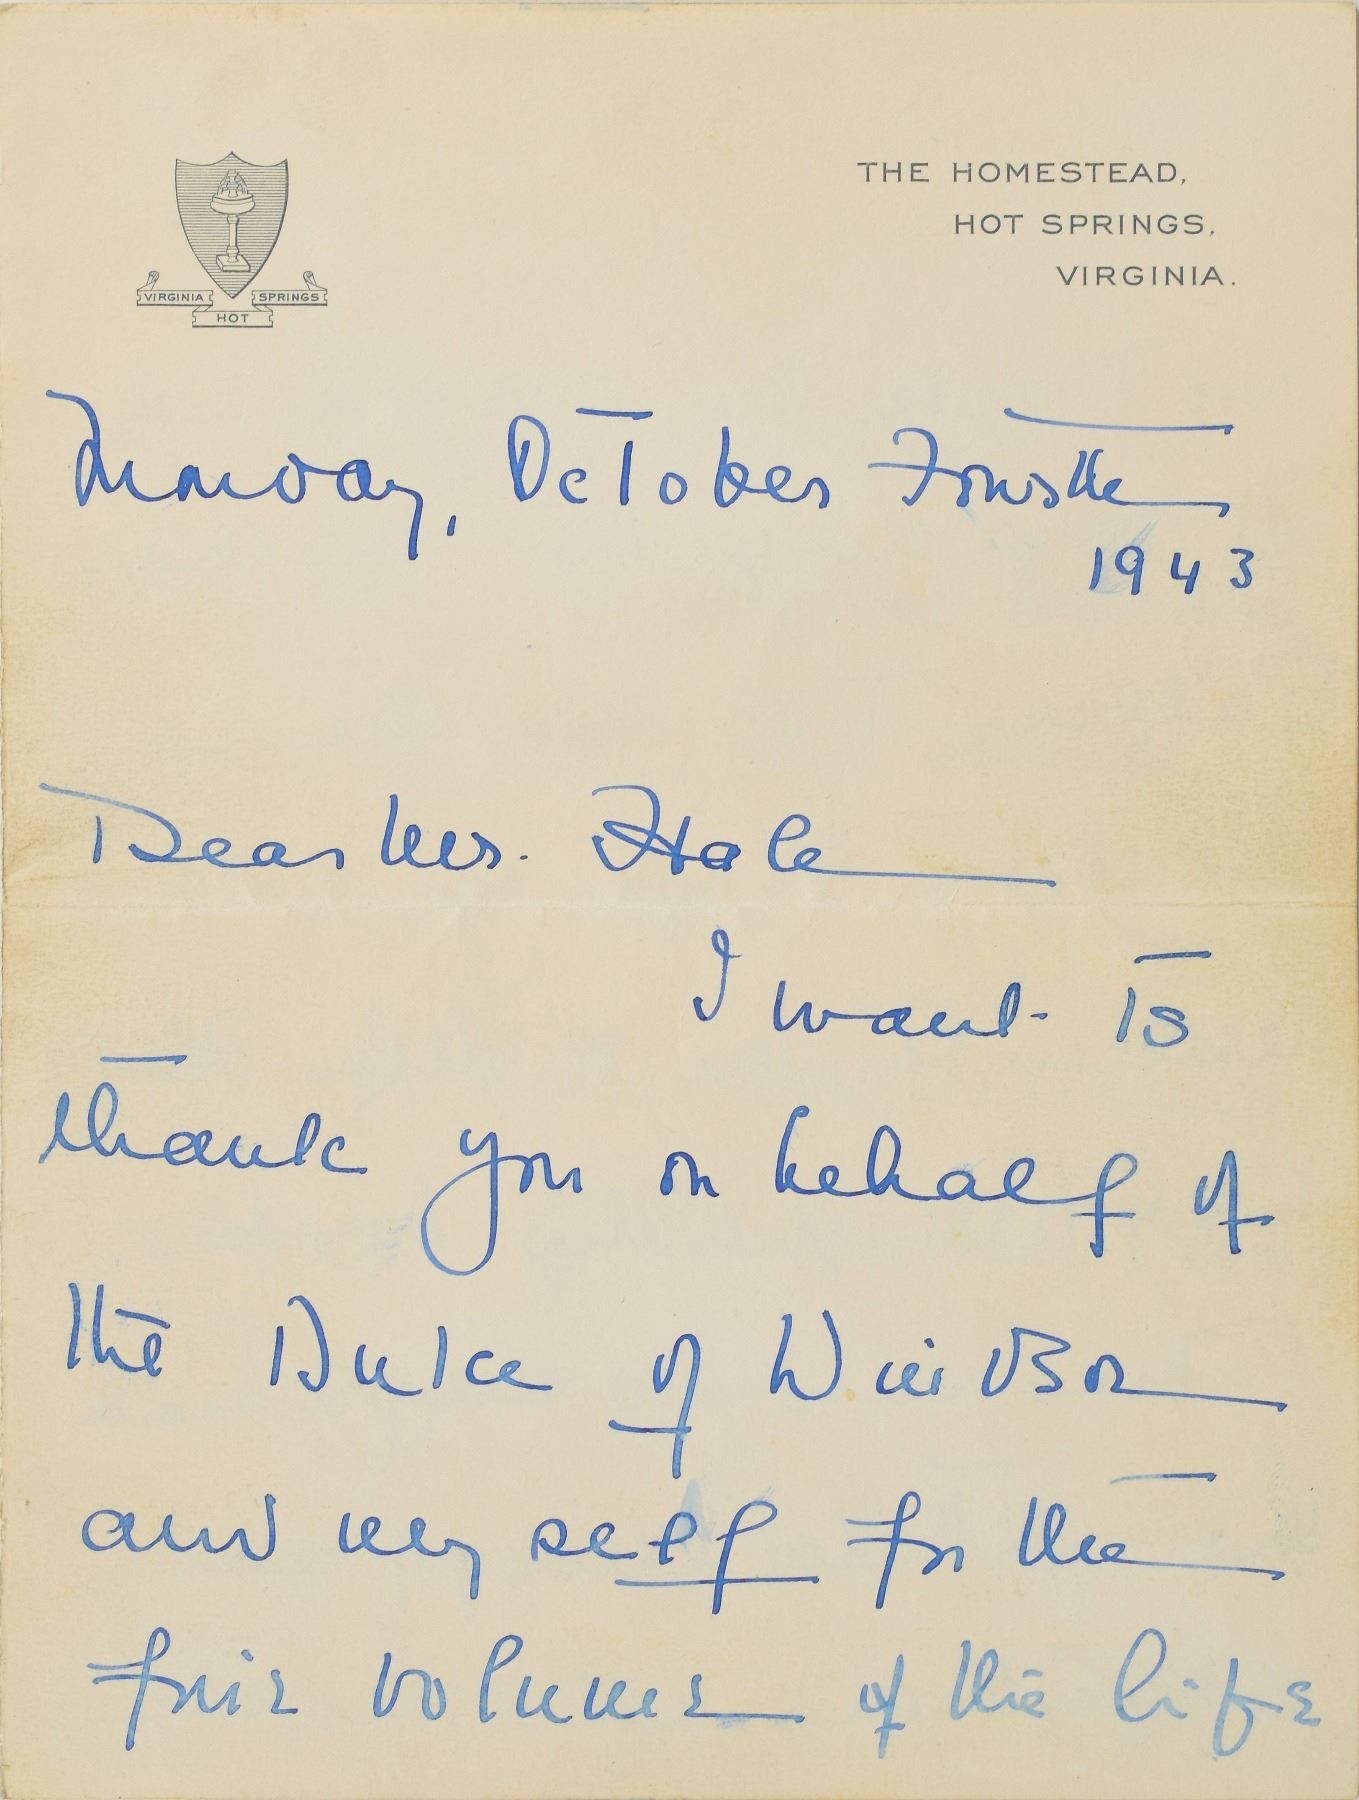 VIRGINIA HOT SPRINGS
THE HOMESTEAD,
HOT SPRINGS,
VIRGINIA.
Monday, October Fourth
1943
Dear Mrs. Hale
I want to
thank you on behalf of
the Duke of Windsor
and myself for the
fine volume of the life